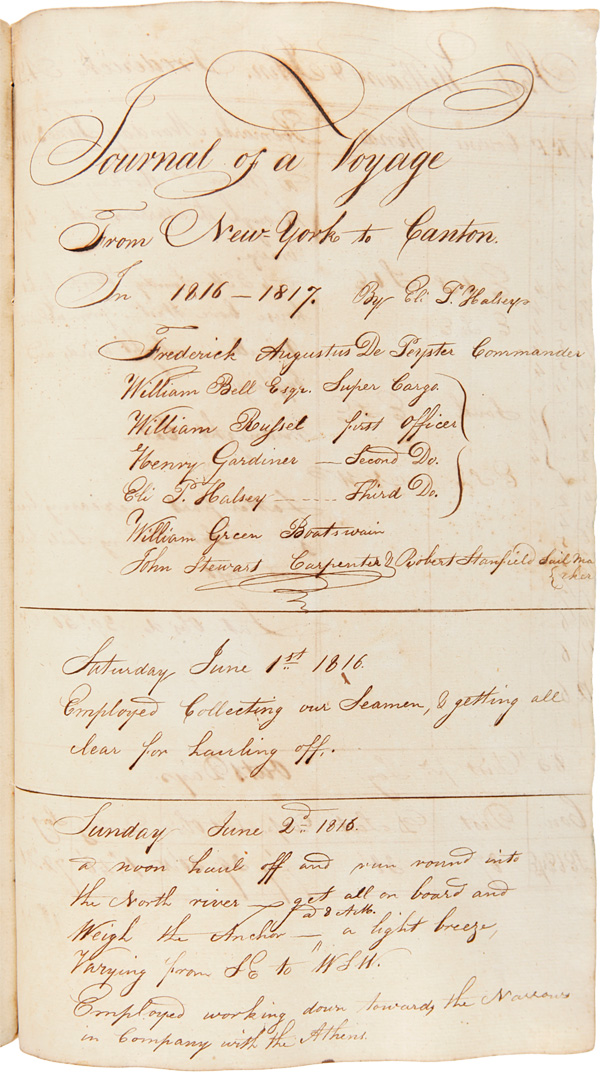 Journal of a Voyage
From New York to Canton.
In 1816 – 1817. By Eli P. Halsey
Frederick Augustus De Peyster Commander
William Bell Esqr. Super Cargo
William Russel first Officer
Henry Gardiner — Second Do.
Eli P. Halsey ----- Third Do.
William Green Boatswain
John Stewart Carpenter & Robert Stanfield Sail Ma
ker
Saturday June 1st 1816.
Employed Collecting our Seamen, & getting all
clear for hauling off.
Sunday June 2d 1816.
a noon haul off and run round into
the North river — get all on board and
at 8 A.M.
Weigh the Anchor — a light breeze,
Varying from SE to WSW.
Employed working down towards the Narrows
in Company with the Athens.